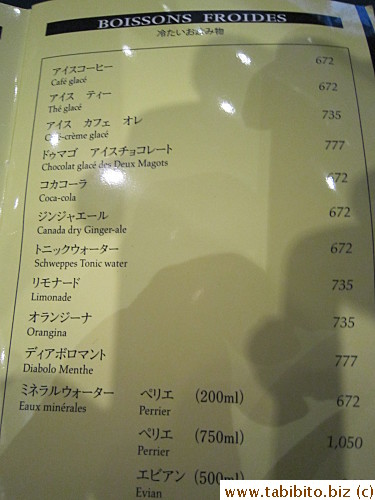 BOISSONS FROIDES
冷たいお飲み物
アイスコーヒー 672
Café glacé
アイス ティー 672
Thé glacé
アイス カフェ オレ 735
Café-crème glacé
ドゥマゴ アイスチョコレート 777
Chocolat glacé des Deux Magots
コカコーラ 672
Coca-cola
ジンジャエール 672
Canada dry Ginger-ale
トニックウォーター 672
Schweppes Tonic water
リモナード 735
Limonade
オランジーナ 735
Orangina
ディアボロマント 777
Diabolo Menthe
ミネラルウォーター ペリエ (200ml) 672
Eaux minérales Perrier
ペリエ (750ml) 1,050
Perrier
エビアン (500ml)
Evian
www.tabibito.biz (c)